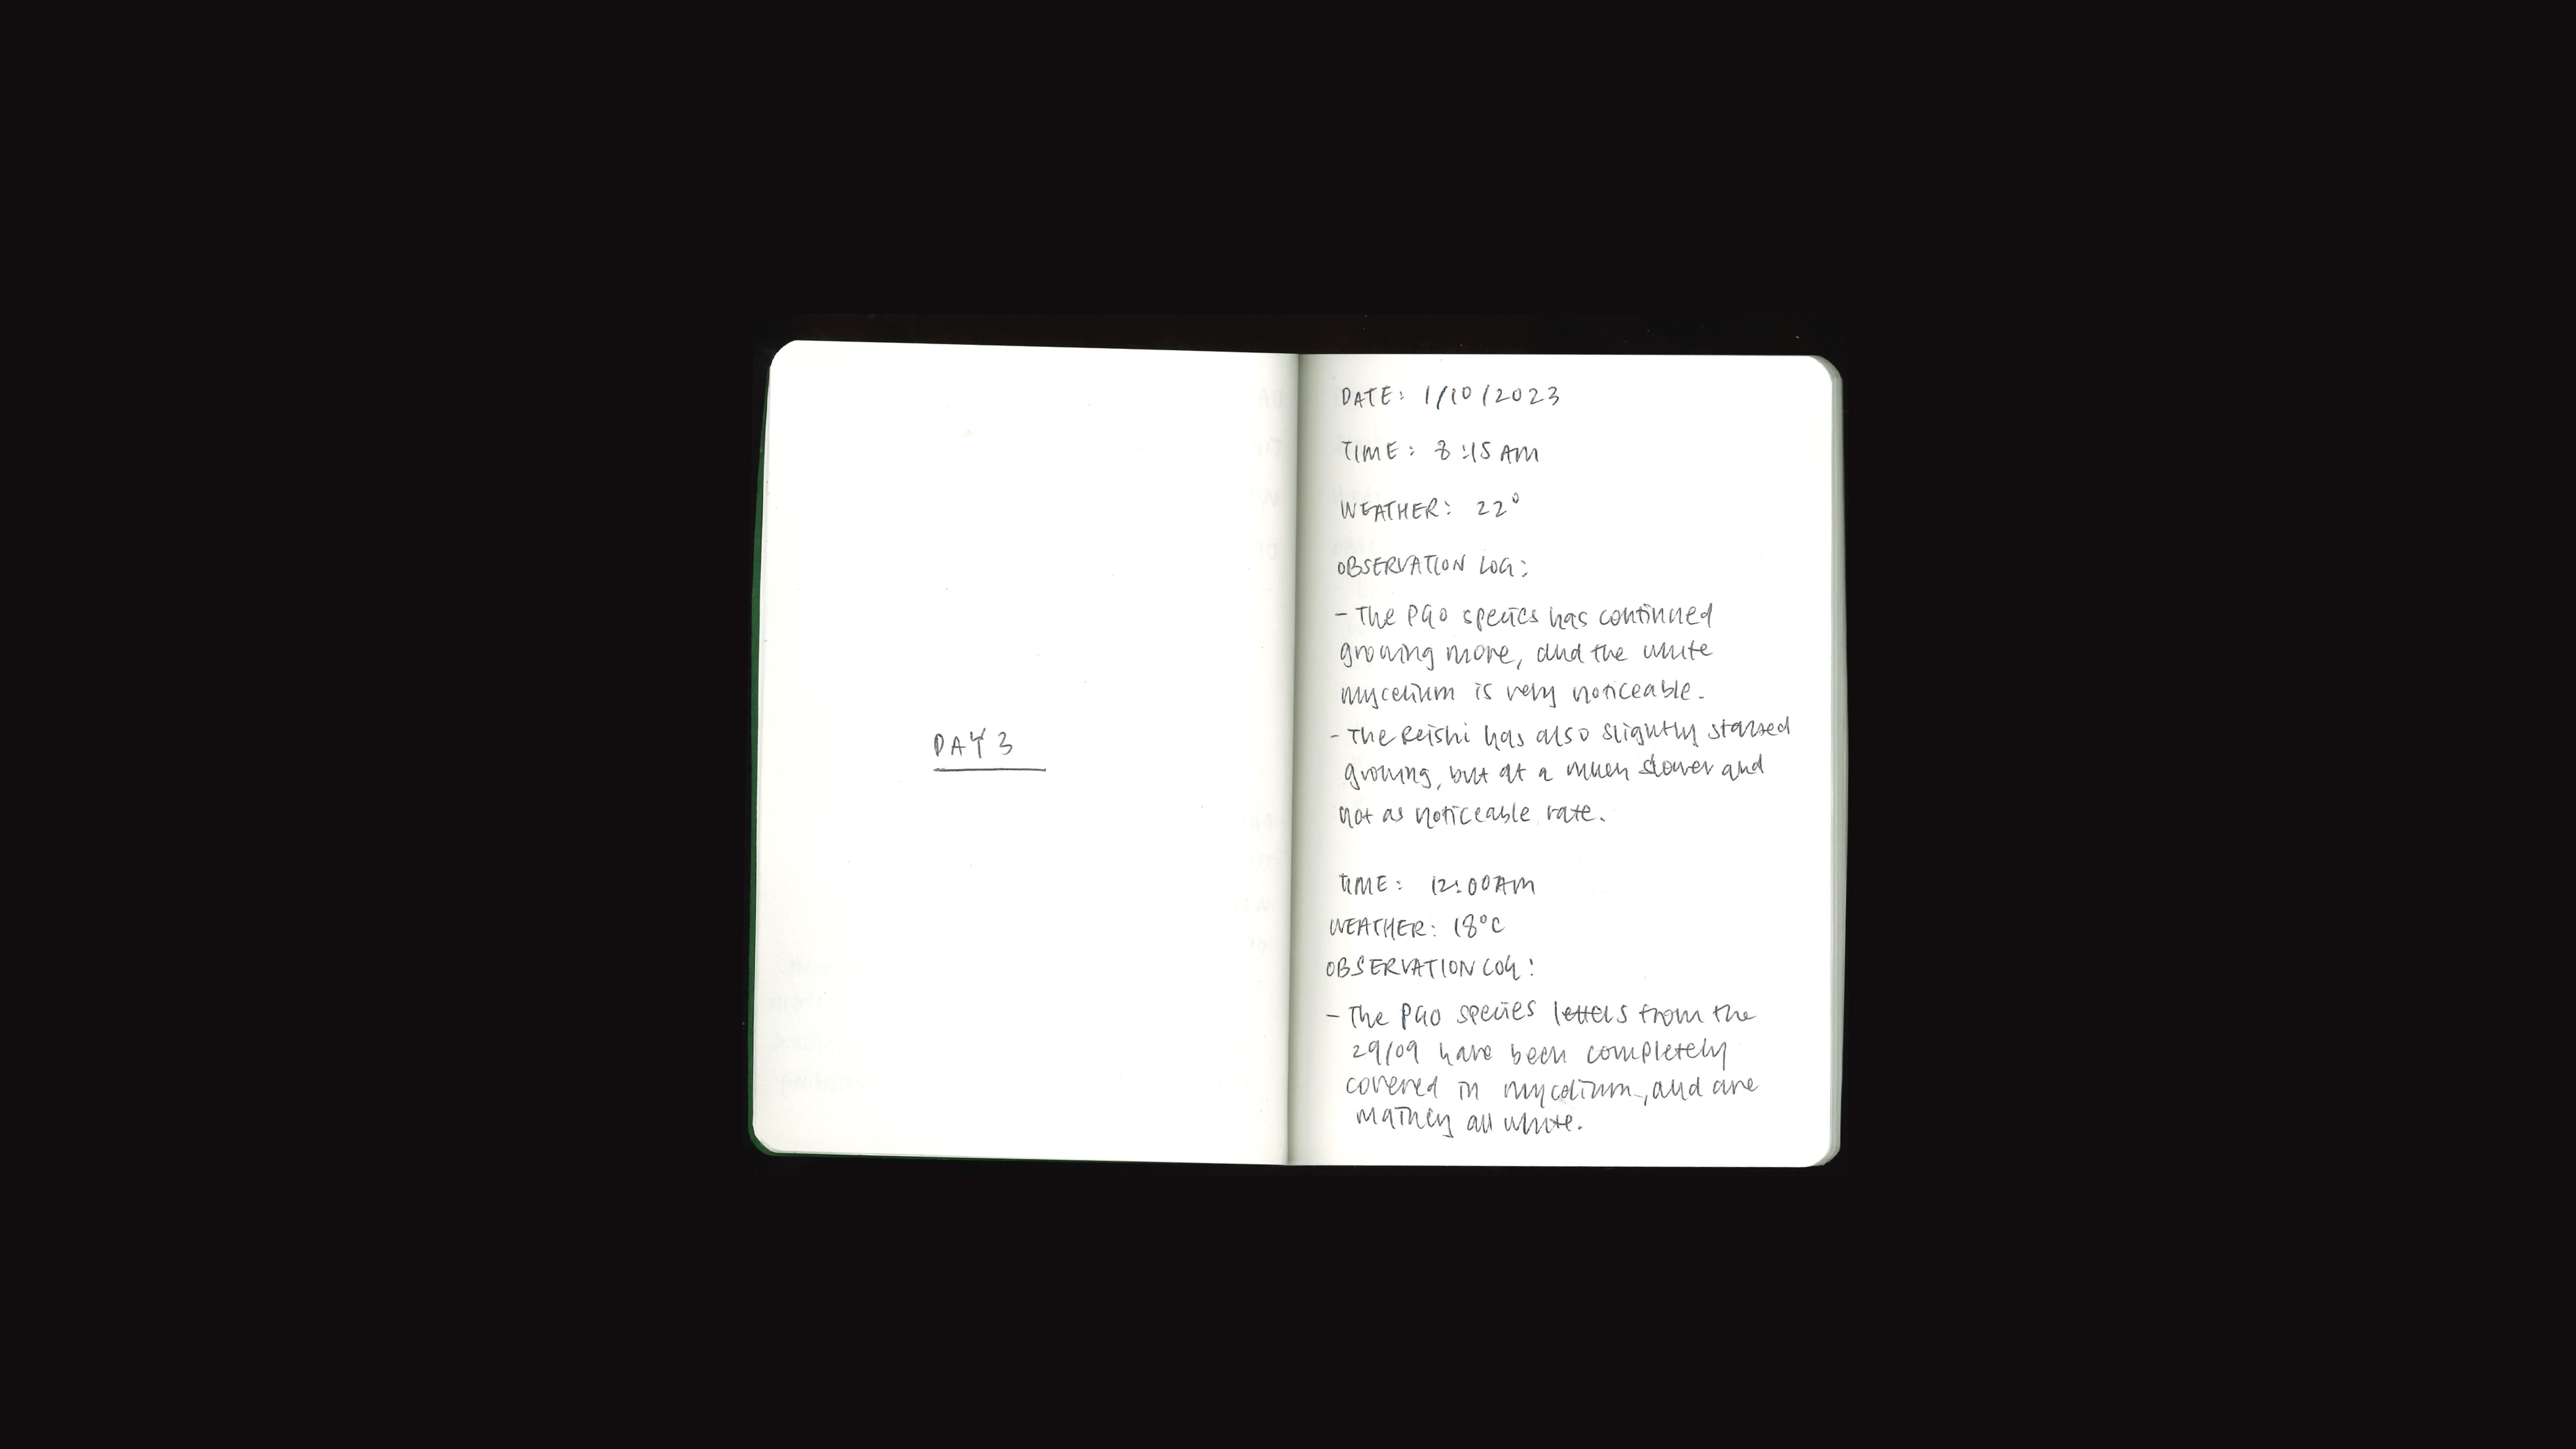 DAY 3
DATE: 1/10/2023
TIME: 8:15 AM
WEATHER: 22°
OBSERVATION LOG:
- The P90 species has continued
growing more, and the white
mycelium is very noticeable.
- The Reishi has also slightly started
growing, but at a much slower and
not as noticeable rate.
TIME: 12:00AM
WEATHER: 18°C
OBSERVATION LOG:
- The P90 species letters from the
29/09 have been completely
covered in mycelium, and are
all white.